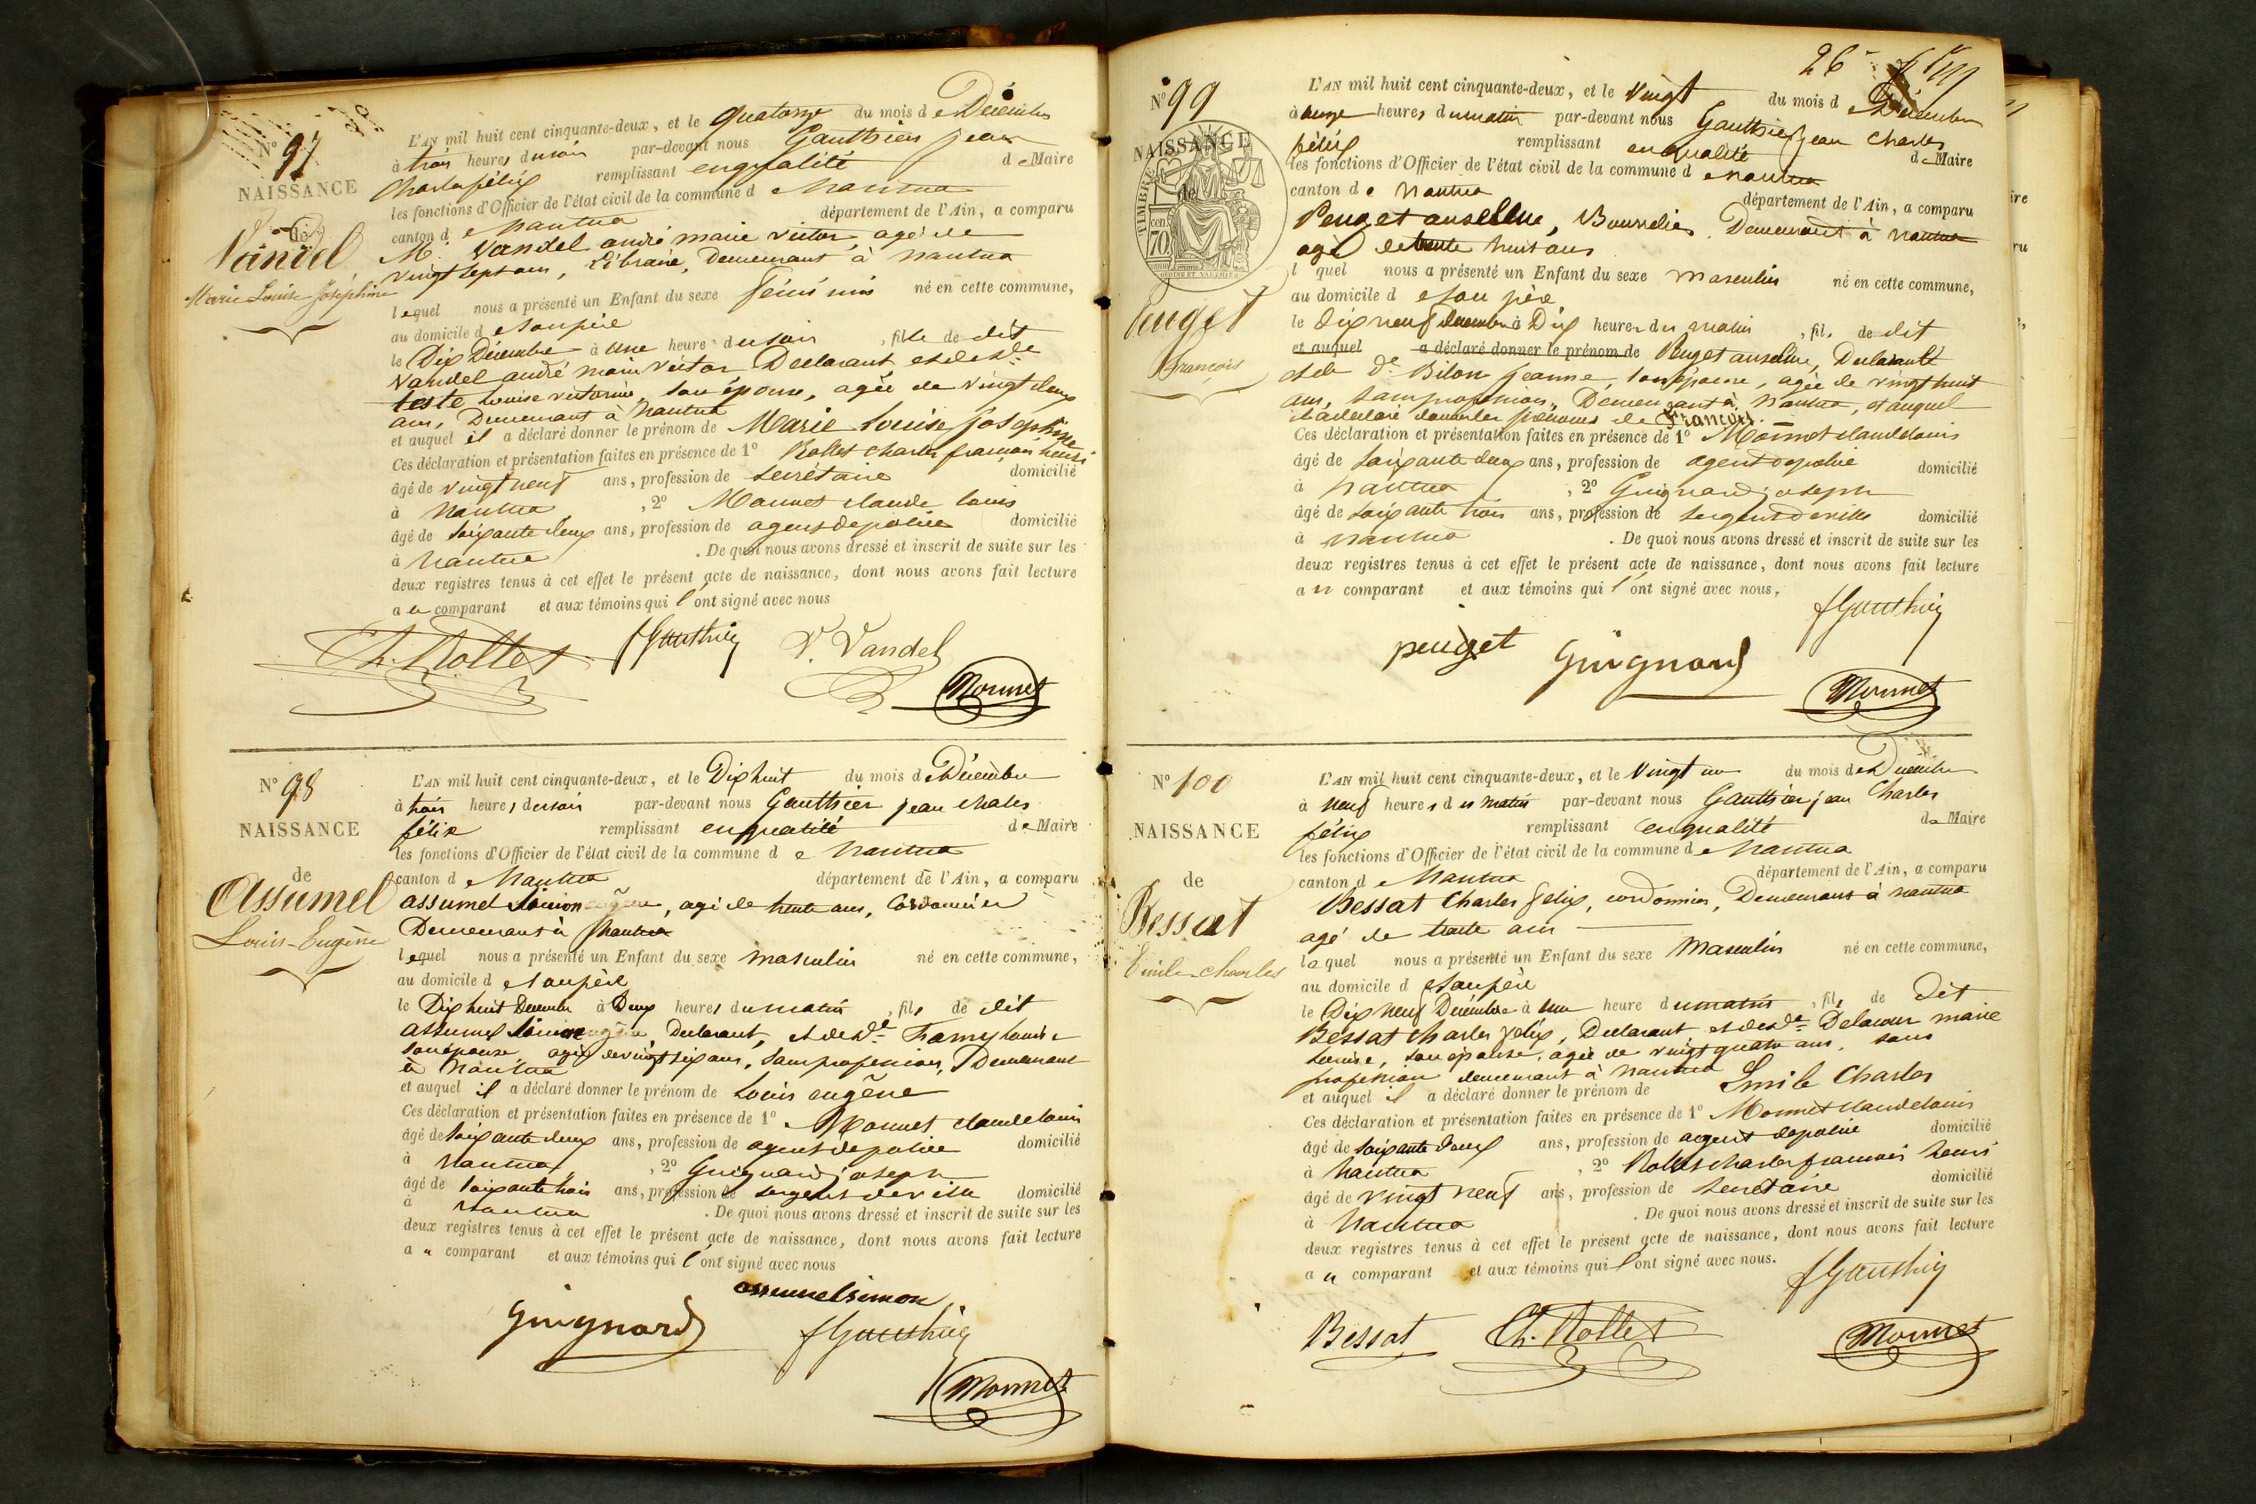 N° 97
NAISSANCE
de
Vandel
Marie Louise Joséphine
L'AN mil huit cent cinquante-deux, et le quatorze du mois de Décembre
à trois heures du soir par-devant nous Gauthier jean
charles félix remplissant en qualité de Maire
les fonctions d'Officier de l'état civil de la commune de Nantua
canton de Nantua département de l'Ain, a comparu
M. Vandel andré marie victor, agé de
vingt sept ans, Libraire, Demeurant à Nantua
lequel nous a présenté un Enfant du sexe féminin né en cette commune,
au domicile de son père
le Dix Décembre à une heure du soir, fille de dit
Vandel andré marie victor Declarant et de de
teste Louise victorine, son épouse, agée de vingt deux
ans, Demeurant à Nantua
et auquel il a déclaré donner le prénom de Marie Louise Joséphine
Ces déclaration et présentation faites en présence de 1° Rollet charles françois henri
âgé de vingt neuf ans, profession de secrétaire domicilié
à Nantua, 2° Monnet claude louis
âgé de soixante deux ans, profession de agent de police domicilié
à Nantua. De quoi nous avons dressé et inscrit de suite sur les
deux registres tenus à cet effet le présent acte de naissance, dont nous avons fait lecture
au comparant et aux témoins qui l'ont signé avec nous
Ch. Rollet f Gauthier V. Vandel
Monnet
N° 98
NAISSANCE
de
Assumel
Louis-Eugène
L'AN mil huit cent cinquante-deux, et le Dix huit du mois de Décembre
à trois heures du soir par-devant nous Gauthier jean chales
félix remplissant en qualité de Maire
les fonctions d'Officier de l'état civil de la commune de Nantua
canton de Nantua département de l'Ain, a comparu
assumel Simon, agé de trente ans, Cordonnier
Demeurant à Nantua
lequel nous a présenté un Enfant du sexe masculin né en cette commune,
au domicile de son père
le Dix huit Decembre à Deux heures du matin, fils de dit
assumel Simon, Declarant, et de de Framy louise
son épouse, agée de vingt six ans, sans profession, Demeurant
à Nantua
et auquel il a déclaré donner le prénom de Louis eugène
Ces déclaration et présentation faites en présence de 1° Monnet claude louis
âgé de soixante deux ans, profession de agent de police domicilié
à Nantua, 2° Guignard joseph
âgé de soixante trois ans, profession de sergent de ville domicilié
à Nantua. De quoi nous avons dressé et inscrit de suite sur les
deux registres tenus à cet effet le présent acte de naissance, dont nous avons fait lecture
au comparant et aux témoins qui l'ont signé avec nous
assumel simon
Guignard f Gauthier
Monnet
26
N° 99
NAISSANCE
de
TIMBRE
70
Peuget
François
L'AN mil huit cent cinquante-deux, et le vingt du mois de Décembre
à onze heures du matin par-devant nous Gauthier jean Charles
félix remplissant en qualité de Maire
les fonctions d'Officier de l'état civil de la commune de Nantua
canton de Nantua département de l'Ain, a comparu
Peuget anselme, Bourrelier, Demeurant à Nantua
agé de trente huit ans
lequel nous a présenté un Enfant du sexe masculin né en cette commune,
au domicile de son père
le Dix neuf decembre à Dix heures du matin, fils de dit
et auquel a déclaré donner le prénom de Peuget anselme, Declarant
et de de Bilon jeanne, son épouse, agée de vingt huit
ans, sans profession, Demeurant à Nantua, et auquel
il a déclaré donner les prénoms de François.
Ces déclaration et présentation faites en présence de 1° Monnet claude louis
âgé de soixante deux ans, profession de agent de police domicilié
à Nantua, 2° Guignard joseph
âgé de soixante trois ans, profession de sergent de ville domicilié
à Nantua. De quoi nous avons dressé et inscrit de suite sur les
deux registres tenus à cet effet le présent acte de naissance, dont nous avons fait lecture
au comparant et aux témoins qui l'ont signé avec nous,
f Gauthier
peuget Guignard
Monnet
N° 100
NAISSANCE
de
Bessat
Emile-charles
L'AN mil huit cent cinquante-deux, et le vingt un du mois de Decembre
à neuf heures du matin par-devant nous Gauthier jean Charles
félix remplissant en qualité de Maire
les fonctions d'Officier de l'état civil de la commune de Nantua
canton de Nantua département de l'Ain, a comparu
Bessat Charles felix, cordonnier, Demeurant à Nantua
agé de trente ans
lequel nous a présenté un Enfant du sexe Masculin né en cette commune,
au domicile de son père
le Dix neuf Décembre à une heure du matin, fils de Dit
Bessat charles félix, Declarant et de de Delacour marie
Louise, son épouse, agée de vingt quatre ans, sans
profession demeurant à Nantua
et auquel il a déclaré donner le prénom de Emile Charles
Ces déclaration et présentation faites en présence de 1° Monnet claude louis
âgé de soixante deux ans, profession de agent de police domicilié
à Nantua, 2° Rollet charles francois henri
âgé de vingt neuf ans, profession de secretaire domicilié
à Nantua. De quoi nous avons dressé et inscrit de suite sur les
deux registres tenus à cet effet le présent acte de naissance, dont nous avons fait lecture
au comparant et aux témoins qui l'ont signé avec nous.
f Gauthier
Bessat Ch. Rollet Monnet